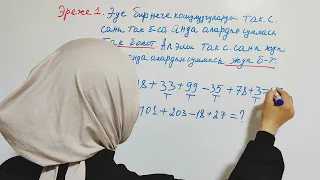 Эреже 1. Эгер бир нече кошулуучулардын так с.
саны так болсо анда алардын суммасы
так болот. Ал эми так с. саны жуп
нда алардын суммасы жуп б-т
8 + 33 + 99 - 35 + 78 + 3 =
Т Т Т Т
101 + 203 - 18 + 27 = ?